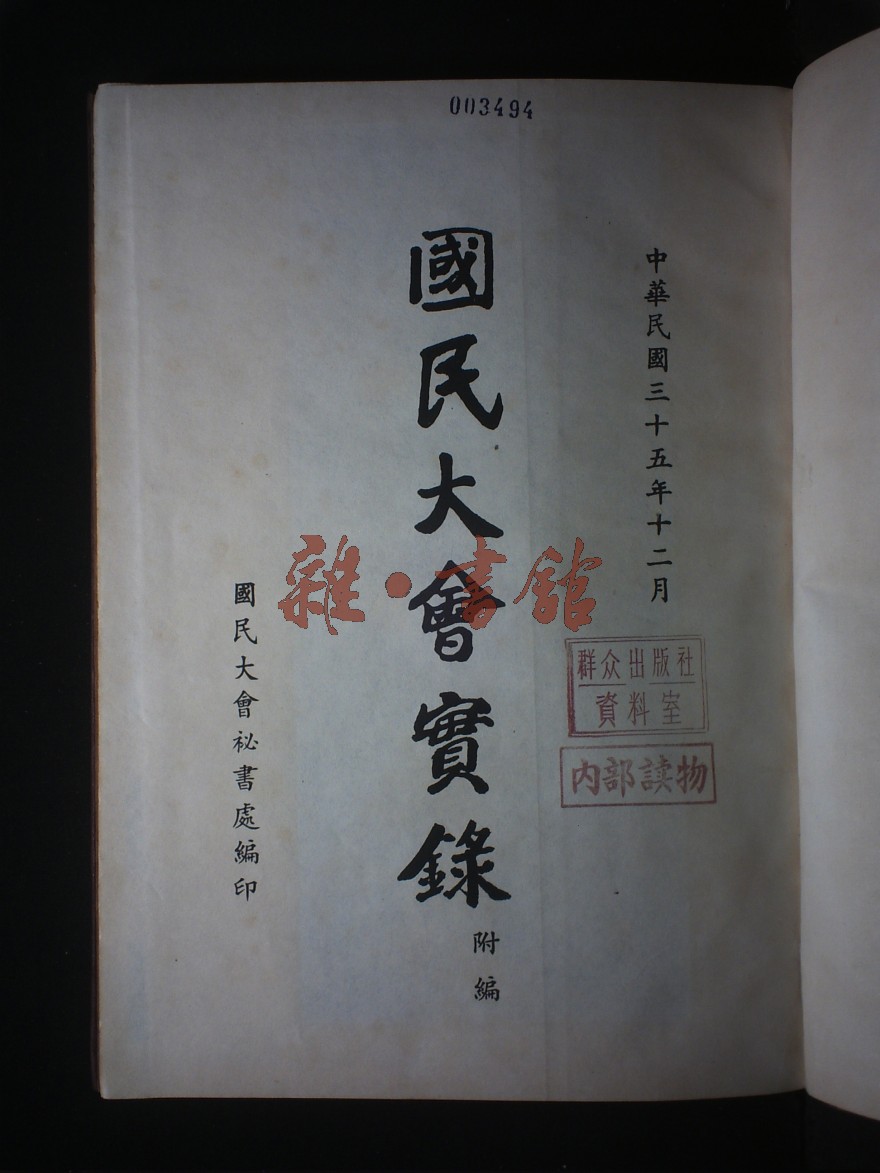 003494
中華民國三十五年十二月
國民大會實錄
附編
國民大會祕書處編印
雜·書館
群众出版社
資料室
内部读物